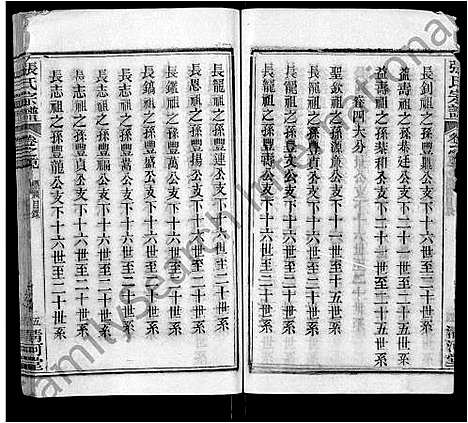 張氏宗譜
長釗祖之孫豐凱公支下十六世至二十世系
益壽祖之孫恭廷公支下二十一世至二十五世系
益壽祖之孫恭和公支下二十一世至二十五世系
卷四大分
聖欽祖之孫源公支下十一世至十五世系
長龍祖之孫豐貞公支下十六世至二十世系
長龍祖之孫豐壽公支下十六世至二十世系
清河堂
FamilySearch International
長龍祖之孫豐漣公支下十六世至二十世系
長恩祖之孫豐揚公支下十六世至二十世系
長鑑祖之孫豐萬公支下十六世至二十世系
長鎬祖之孫豐盛公支下十六世至二十世系
長志祖之孫豐貞公支下十六世至二十世系
長志祖之孫豐龍公支下十六世至二十世系
張氏宗譜
卷之
目錄
五
清河堂